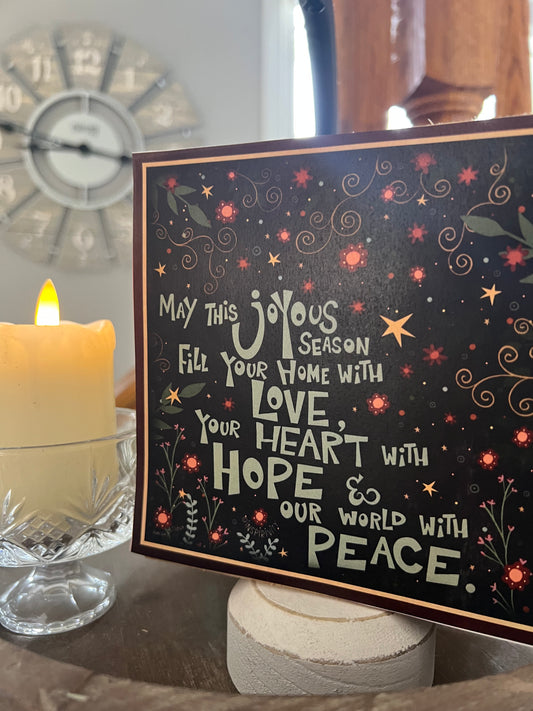 12
10
MAY THIS JOYOUS
SEASON
FILL YOUR HOME WITH
LOVE,
YOUR HEART WITH
HOPE &
OUR WORLD WITH
PEACE.